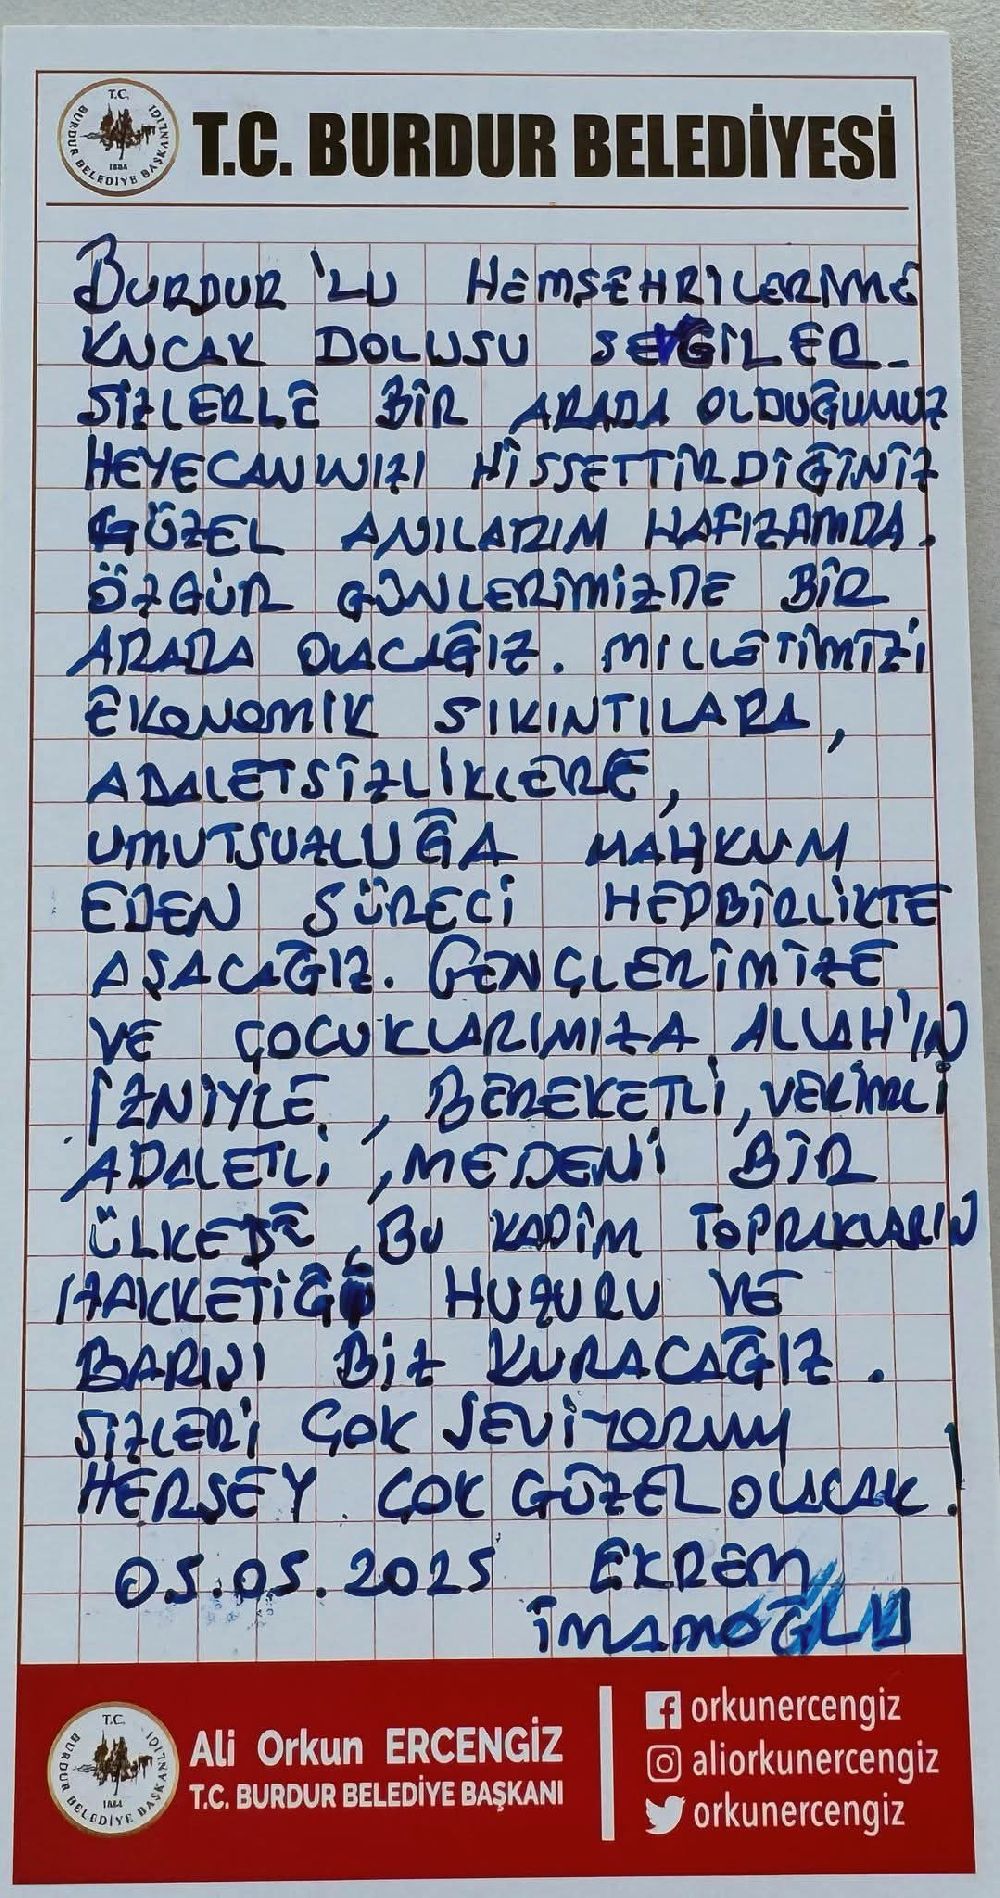 T.C.
BURDUR BELEDİYE BAŞKANLIĞI
1884
T.C. BURDUR BELEDİYESİ
BURDUR'LU HEMŞEHRİLERİME
KUCAK DOLUSU SEVGİLER.
SİZLERLE BİR ARADA OLDUĞUMUZ
HEYECANINIZI HİSSETTİRDİĞİNİZ
GÜZEL ANILARIM HAFIZAMDA.
ÖZGÜR GÜNLERİMİZDE BİR
ARADA OLACAĞIZ. MİLLETİMİZİ
EKONOMİK SIKINTILARA,
ADALETSİZLİKLERE,
UMUTSUZLUĞA MAHKUM
EDEN SÜRECİ HEPBİRLİKTE
AŞACAĞIZ. GENÇLERİMİZE
VE ÇOCUKLARIMIZA ALLAH'IN
İZNİYLE, BEREKETLİ, VERİMLİ
ADALETLİ, MEDENİ BİR
ÜLKEDE, BU KADİM TOPRAKLARIN
HAKKETİĞİ HUZURU VE
BARIŞI BİZ KURACAĞIZ.
SİZLERİ ÇOK SEVİYORUM
HERŞEY ÇOK GÜZEL OLACAK!
05.05.2025 EKREM
İMAMOĞLU
T.C.
BURDUR BELEDİYE BAŞKANLIĞI
1884
Ali Orkun ERCENGİZ
T.C. BURDUR BELEDİYE BAŞKANI
orkunercengiz
aliorkunercengiz
orkunercengiz